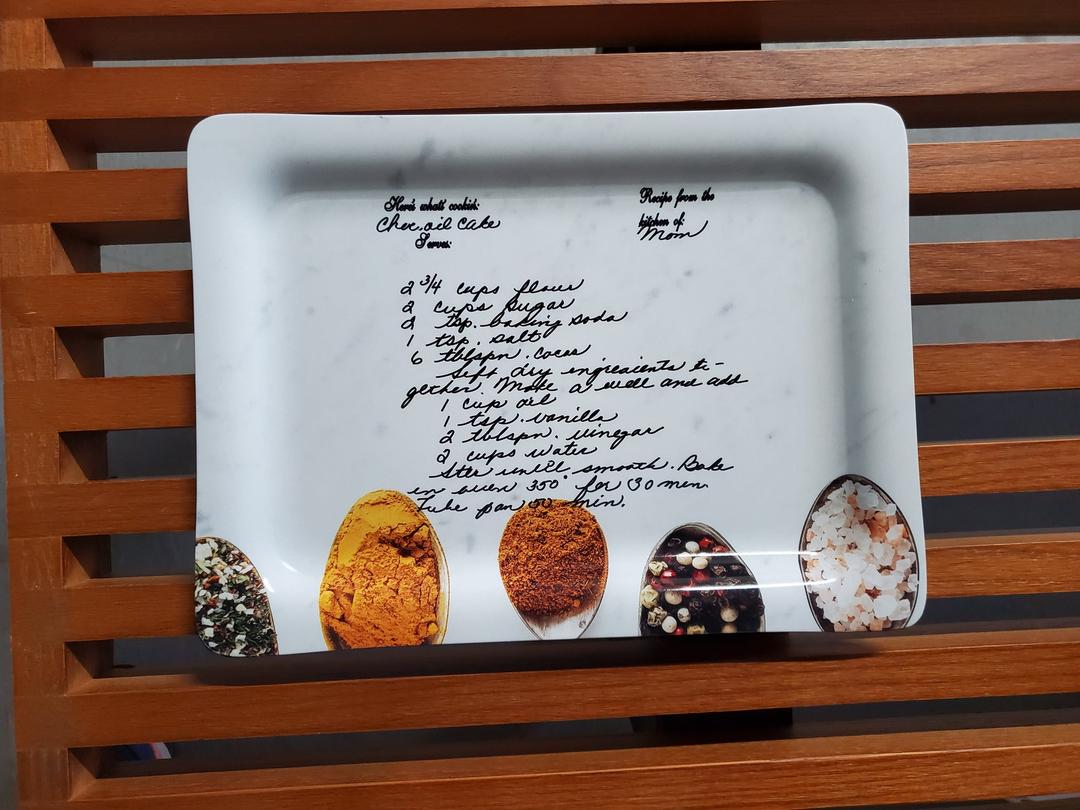 Here's what's cookin:
Choc. oil Cake
Serves:
Recipe from the
kitchen of:
Mom
2 3/4 cups flour
2 cups sugar
2 tsp. baking soda
1 tsp. salt
6 tblspn. cocoa
Sift dry ingredients to-
gether. Make a well and add
1 cup oil
1 tsp. vanilla
2 tblspn. vinegar
2 cups water
Stir until smooth. Bake
in oven 350° for 30 min.
Tube pan 50 min.